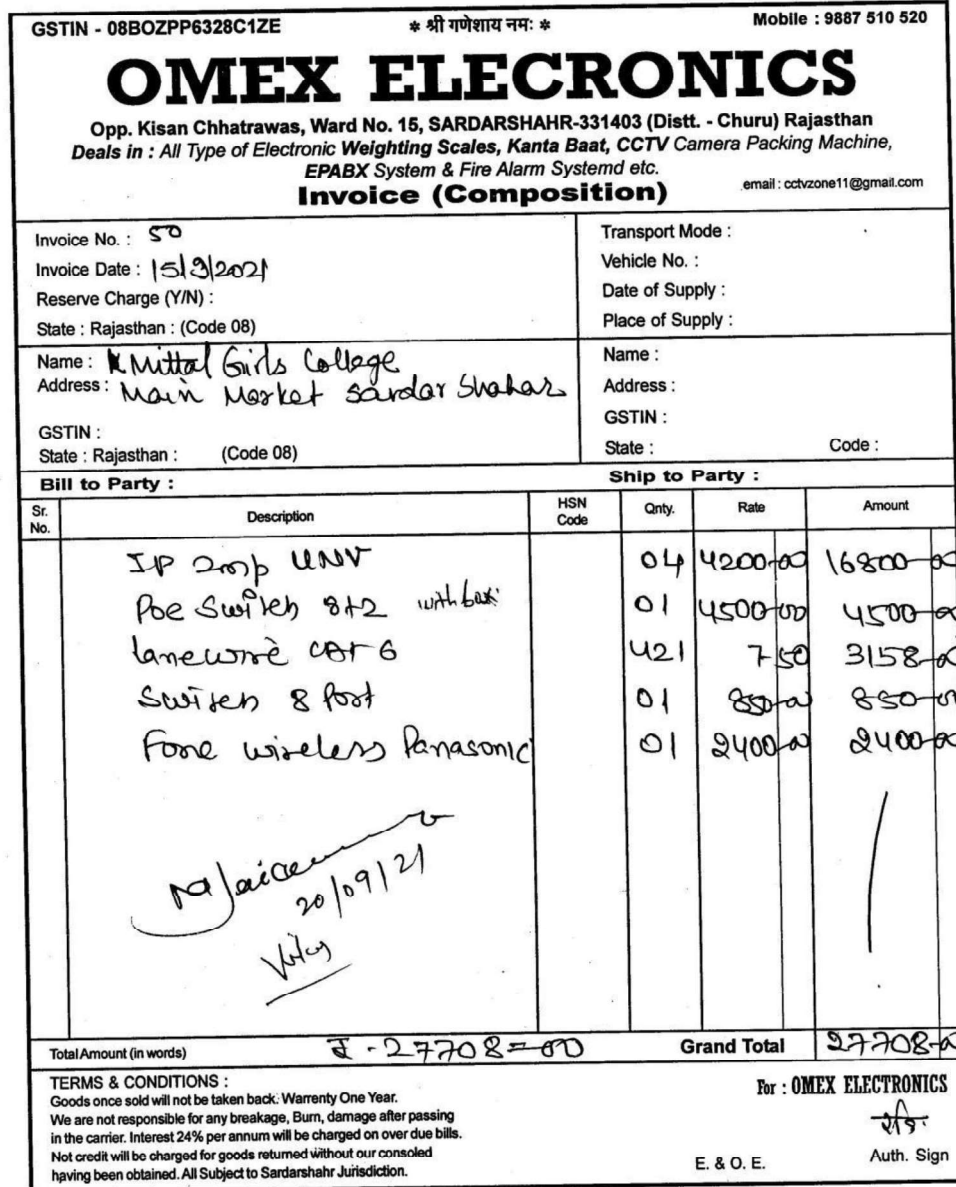 GSTIN - 08BOZPP6328C1ZE
* श्री गणेशाय नमः *
Mobile : 9887 510 520
OMEX ELECRONICS
Opp. Kisan Chhatrawas, Ward No. 15, SARDARSHAHR-331403 (Distt. - Churu) Rajasthan
Deals in : All Type of Electronic Weighting Scales, Kanta Baat, CCTV Camera Packing Machine,
EPABX System & Fire Alarm Systemd etc.
Invoice (Composition)
email : cctvzone11@gmail.com
Invoice No. : 50
Invoice Date : 15/9/2021
Reserve Charge (Y/N) :
State : Rajasthan : (Code 08)
Transport Mode :
Vehicle No. :
Date of Supply :
Place of Supply :
Name : K Mittal Girls College
Address : Main Market Sardar Shahar
GSTIN :
State : Rajasthan : (Code 08)
Name :
Address :
GSTIN :
State : Code :
Bill to Party :
Ship to Party :
Sr. No. Description HSN Code Qnty. Rate Amount
IP 2mp UNV 04 4200-00 16800-00
Poe Switch 8+2 with box 01 4500-00 4500-00
lanewire CAT 6 421 7 50 3158-00
Switch 8 Port 01 850-00 850-00
Fone wireless Panasonic 01 2400-00 2400-00
20/09/21
Total Amount (in words) ₹ - 27708=00 Grand Total 27708-00
TERMS & CONDITIONS :
Goods once sold will not be taken back. Warrenty One Year.
We are not responsible for any breakage, Burn, damage after passing
in the carrier. Interest 24% per annum will be charged on over due bills.
Not credit will be charged for goods returned without our consoled
having been obtained. All Subject to Sardarshahr Jurisdiction.
For : OMEX ELECTRONICS
E. & O. E.
Auth. Sign